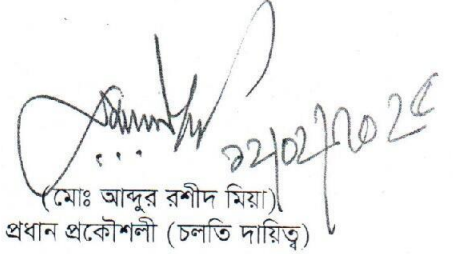 ১২/০২/২০২৫
(মোঃ আব্দুর রশীদ মিয়া)
প্রধান প্রকৌশলী (চলতি দায়িত্ব)